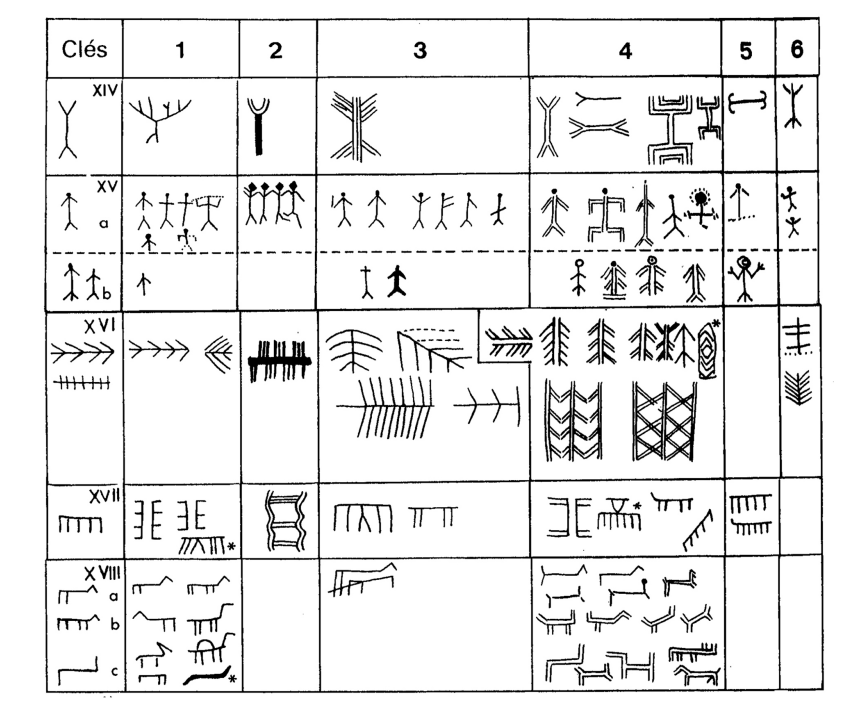 Clés 1 2 3 4 5 6
XIV
XV
a
b
XVI
*
XVII
* *
XVIII
a
b
c *